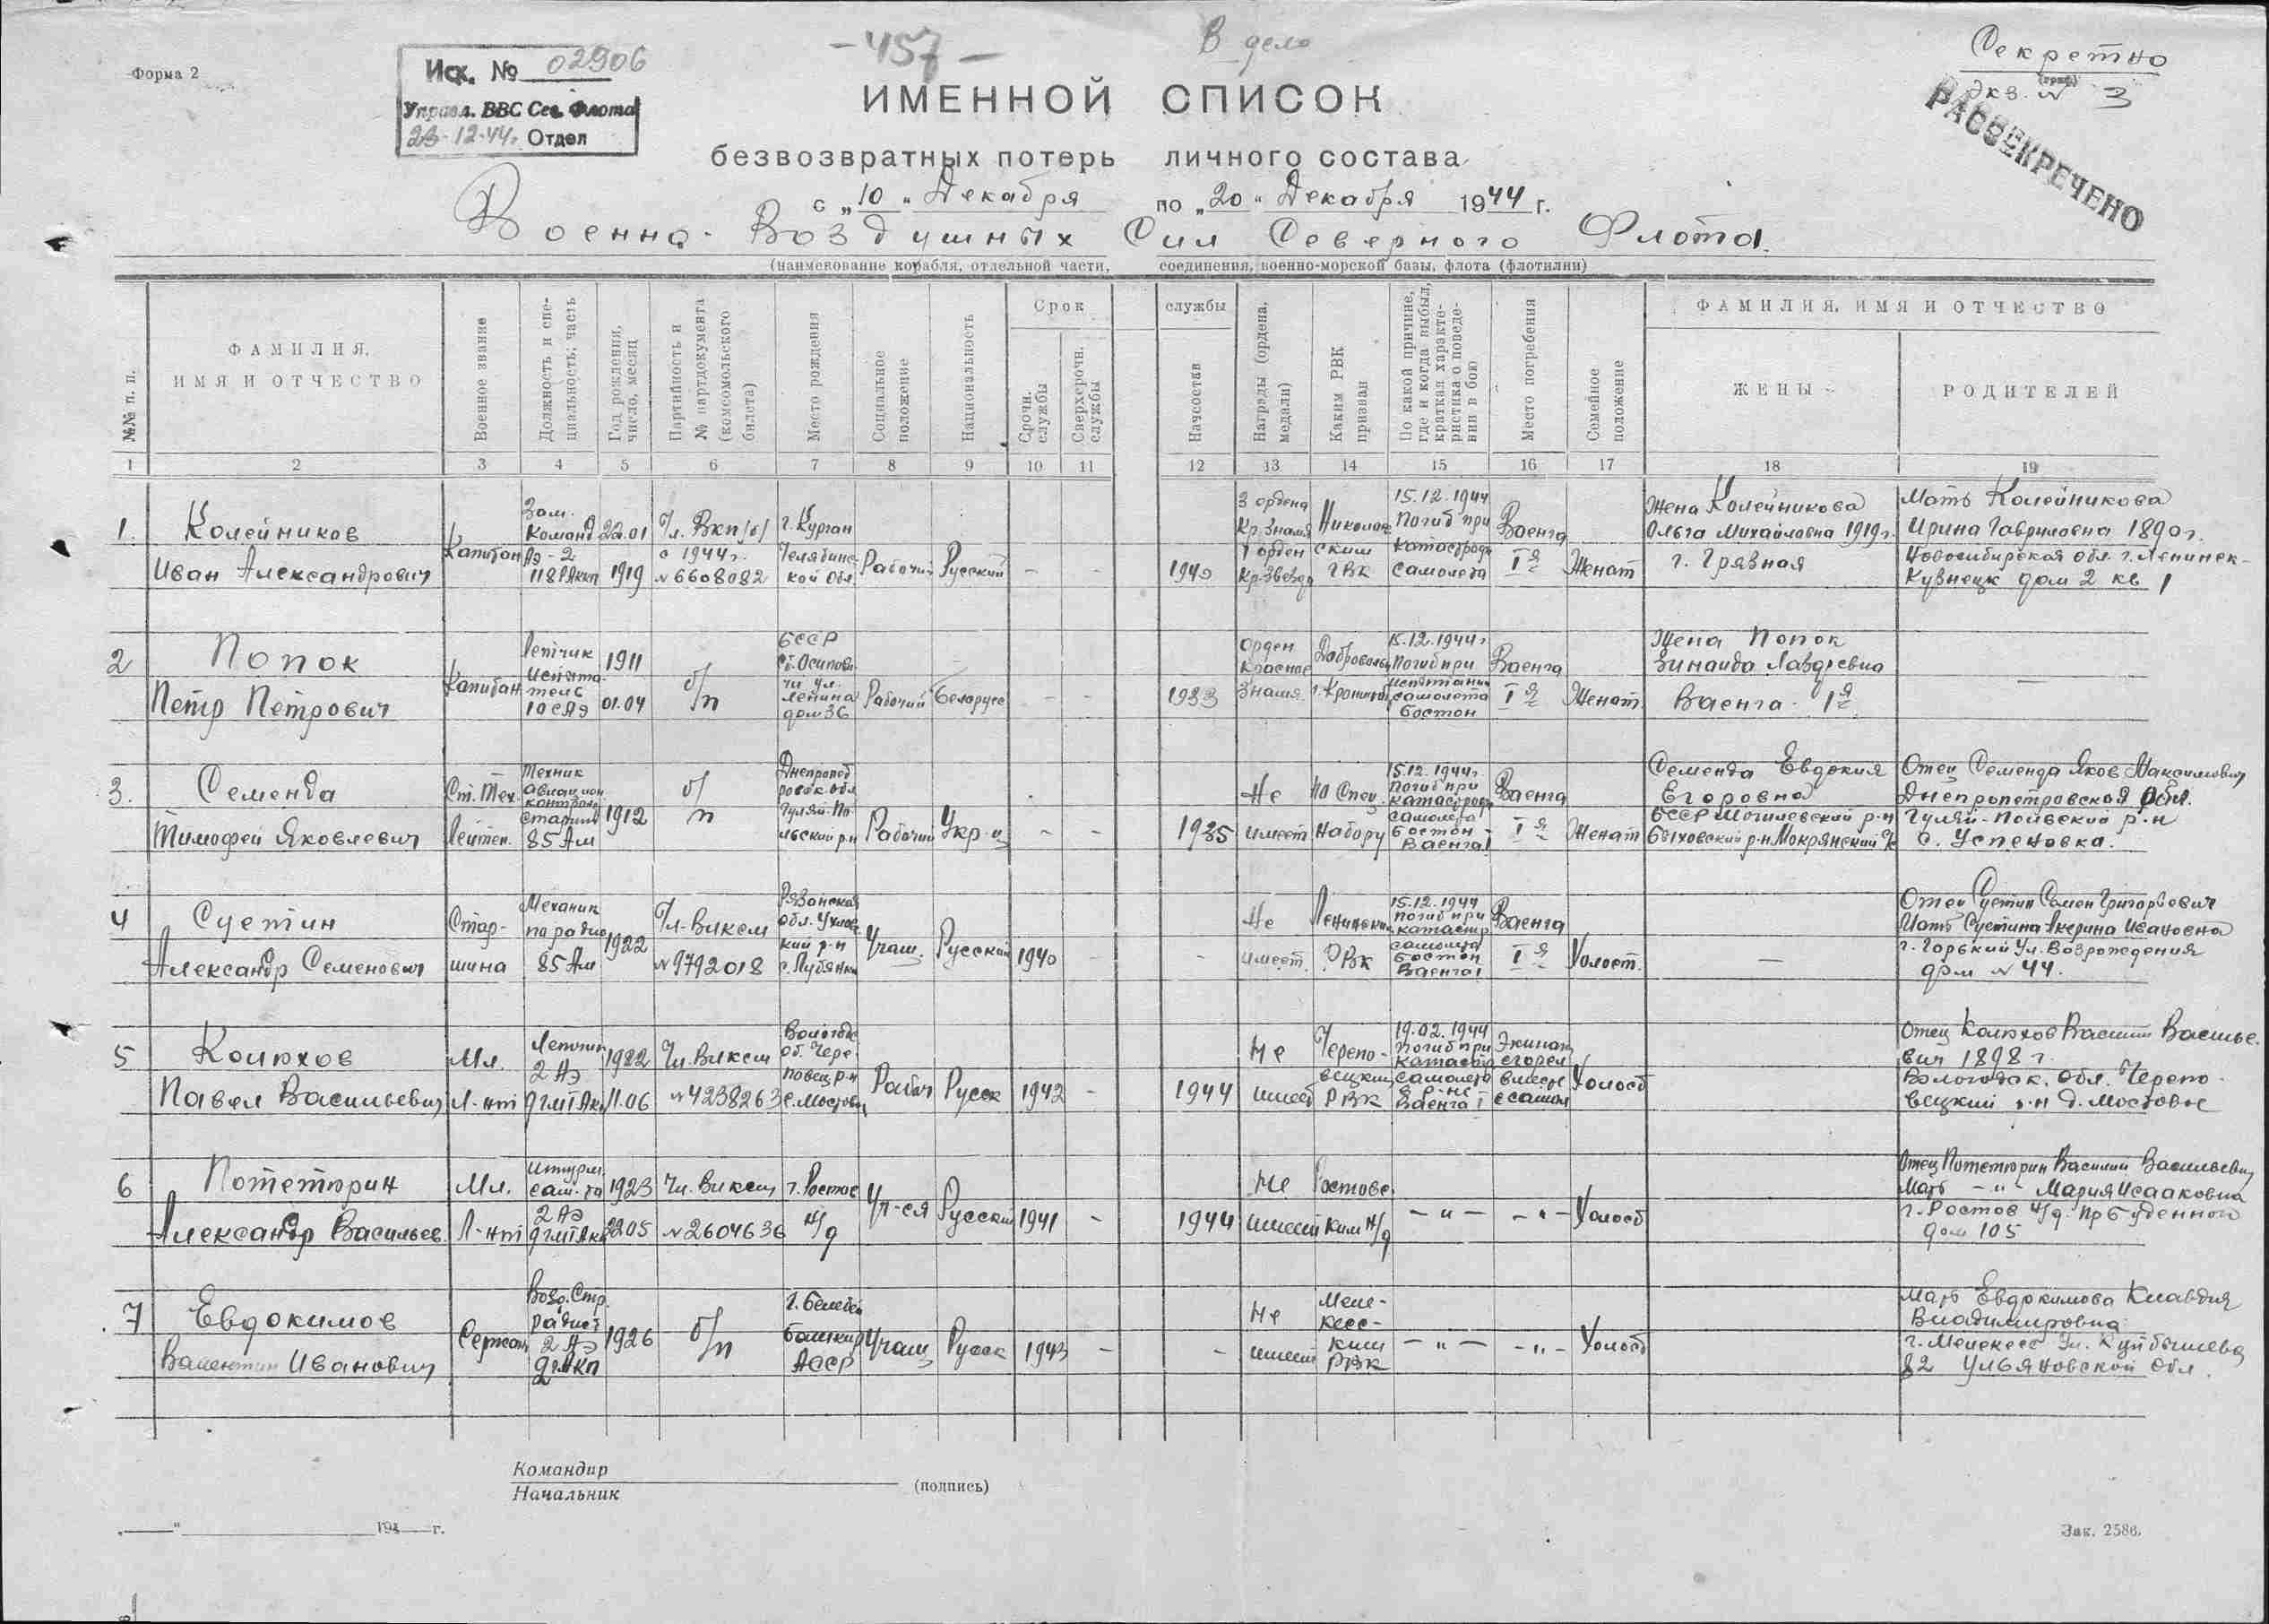 Форма 2
Исх. № 02906
Управл. ВВС Сев. Флота
23-12-44г. Отдел
-457-
В дело
Секретно
(гриф)
Экз. № 3
РАССЕКРЕЧЕНО
ИМЕННОЙ СПИСОК
безвозвратных потерь личного состава
с „10“ Декабря по „20“ Декабря 1944 г.
Военно-Воздушных Сил Северного Флота.
(наименование корабля, отдельной части, соединения, военно-морской базы, флота (флотилии)
№№ п. п.
ФАМИЛИЯ,
ИМЯ И ОТЧЕСТВО
Военное звание
Должность и спе-
циальность; часть
Год рождения,
число, месяц
Партийность и
№ партдокумента
(комсомольского
билета)
Место рождения
Социальное
положение
Национальность
Срок
Срочн.
службы
Сверхсрочн.
службы
службы
Начсостав
Награды (ордена,
медали)
Каким РВК
призван
По какой причине,
где и когда выбыл,
краткая характе-
ристика о поведе-
нии в бою
Место погребения
Семейное
положение
ФАМИЛИЯ, ИМЯ И ОТЧЕСТВО
ЖЕНЫ
РОДИТЕЛЕЙ
1 2 3 4 5 6 7 8 9 10 11 12 13 14 15 16 17 18 19
1.
Колейников
Иван Александрович
Капитан
Зам.
Команд
АЭ-2
118 РАКП
22.01
1919
Чл. ВКП/б/
с 1944г.
№ 6608082
г. Курган
Челябинс
кой обл
Рабочий
Русский
-
-
1940
3 ордена
Кр. Знамя
1 орден
Кр. Звезды
ским
ГВК
15.12.1944
Погиб при
катастрофе
самолета
Ваенга
I я
Женат
Жена Колейникова
Ольга Михайловна 1919г.
г. Грязная
Мать Колейникова
Ирина Гавриловна 1890г.
Новосибирская обл. г. Ленинск-
Кузнецк дом 2 кв 1
2
Попок
Петр Петрович
Капитан
Летчик
Испыта
тель
10 САЭ
1911
01.04
б/п
БССР
ул.
Ленина
дом 36
Рабочий
Беларусс
-
-
1933
орден
Красное
Знамя
15.12.1944г
Погиб при
испытании
самолета
Бостон
Ваенга
I я
Женат
Жена Попок
Зинаида
Ваенга - 1я
3.
Семенда
Тимофей Яковлевич
Ст. Тех.
Лейтен.
Техник
авиацион
контроля
старший
85 АМ
1912
б/п
Днепропет
ровск. обл
Гуляй-По
льский р-н
Рабочий
Укр-ц
-
-
1935
Не
имеет
По Спец
Набору
15.12.1944г.
Погиб при
катастрофе
самолета
Бостон -
Ваенга 1
Ваенга
I я
Женат
Семенда Евдокия
Егоровна
БССР Могилевский р-н
Быховский р-н Мокрянский
Отец Семенда Яков Максимович
Днепропетровская обл.
Гуляй-Польский р-н
с. Успеновка.
4
Суетин
Александр Семенович
Стар-
шина
Механик
по радио
85 АМ
1922
Чл-ВЛКСМ
№ 9792018
Рязанская
обл.
кий р-н
с. Лубянки
Учащ.
Русский
1940
-
-
Не
имеет
Ленински
РВК
15.12.1944
Погиб при
катастр
самолета
Бостон
Ваенга 1
Ваенга
I я
Холост.
—
Отец Суетин Семен Григорьевич
Мать Суетина Акерина Ивановна
г. Горький Ул. Возрождения
дом № 44.
5
Колюхов
Павел Васильевич
Мл.
Л-нт
Летчик
2 АЭ
9 ГМТАКП
1922
11.06
Чл. ВЛКСМ
№ 4238263
Вологодс
об. Чере
повец р-н
с. Мостовая
Рабоч
Русск
1942
-
1944
Не
имеет
Черепо-
вецким
РВК
19.02.1944
Погиб при
катастр
самолета
в р-не
Ваенга I
Экипаж
сгорел
вместе
с самол
Холост
Отец Колюхов Васили Василье-
вич 1898 г.
Вологодск. обл. Черепо-
вецкий р-н д. Мостовое
6
Потетюрин
Александр Васильев.
Мл.
Л-нт
Штурм.
сам-та
2 АЭ
9 ГМТАКП
1923
22.05
Чл. ВЛКСМ
№ 2604636
г. Ростов
н/д
Уч-ся
Русский
1941
-
1944
Не
имеет
Ростовс
ким н/д
- " -
- " -
Холост
Отец Потетюрин Василий Васильевич
Мать - " - Мария Исааковна
г. Ростов н/д. пр Буденного
дом 105
7
Евдокимов
Валентин Иванович
Сержан
Возд. Стр.
радист
2 АЭ
1926
б/п
г. Белебей
Башкир
АССР
Учащ
Русск
1943
-
-
Не
имеет
Меле-
кесс-
ким
РВК
- " -
- " -
Холост
Мать Евдокимова Клавдия
Владимировна
г. Мелекесс Ул. Куйбышева
82 Ульяновской обл.
Командир
Начальник
(подпись)
„ “ 194 г.
Зак. 2586.